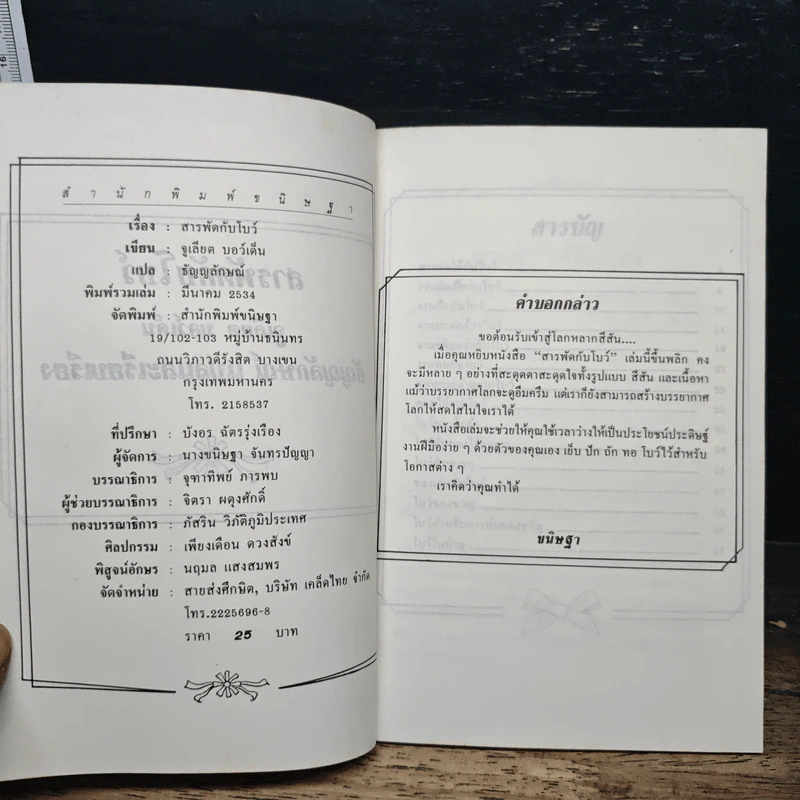 สำนักพิมพ์ขนิษฐา
เรื่อง : สารพัดกับโบว์
เขียน : จูเลียต บอว์เด็น
แปล : ธัญญลักษณ์
พิมพ์รวมเล่ม : มีนาคม 2534
จัดพิมพ์ : สำนักพิมพ์ขนิษฐา
19/102-103 หมู่บ้านธนินทร
ถนนวิภาวดีรังสิต บางเขน
กรุงเทพมหานคร
โทร. 2158537
ที่ปรึกษา : บังอร ฉัตรรุ่งเรือง
ผู้จัดการ : นางขนิษฐา จันทรปัญญา
บรรณาธิการ : จุฑาทิพย์ ภารพบ
ผู้ช่วยบรรณาธิการ : จิตรา ผดุงศักดิ์
กองบรรณาธิการ : ภัสริน วิภัติภูมิประเทศ
ศิลปกรรม : เพียงเดือน ดวงสังข์
พิสูจน์อักษร : นฤมล แสงสมพร
จัดจำหน่าย : สายส่งศึกษิต, บริษัท เคล็ดไทย จำกัด
โทร.2225696-8
ราคา 25 บาท
สารบัญ
คำบอกกล่าว
ขอต้อนรับเข้าสู่โลกหลากสีสัน....
เมื่อคุณหยิบหนังสือ “สารพัดกับโบว์” เล่มนี้ขึ้นพลิก คง
จะมีหลาย ๆ อย่างที่สะดุดตาสะดุดใจทั้งรูปแบบ สีสัน และเนื้อหา
แม้ว่าบรรยากาศโลกจะดูอึมครึม แต่เราก็ยังสามารถสร้างบรรยากาศ
โลกให้สดใสในใจเราได้
หนังสือเล่มจะช่วยให้คุณใช้เวลาว่างให้เป็นประโยชน์ประดิษฐ์
งานฝีมือง่าย ๆ ด้วยตัวของคุณเอง เย็บ ปัก ถัก ทอ โบว์ไว้สำหรับ
โอกาสต่าง ๆ
เราคิดว่าคุณทำได้
ขนิษฐา